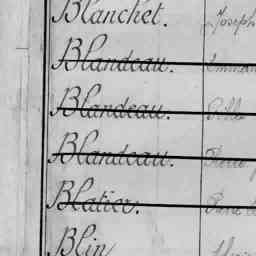 Blanchet. Joseph
Blandeau.
Blandeau.
Blandeau. Pierre
Blatier.
Blin